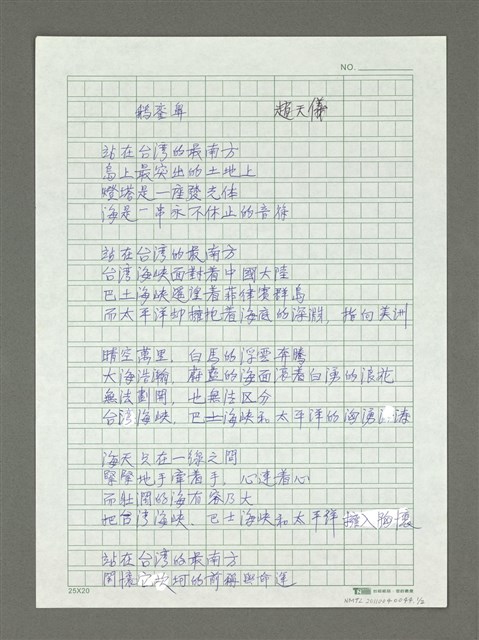 NO.
鵝鑾鼻 趙天儀
站在台湾的最南方
島上最突出的土地上
燈塔是一座發光体
海是一串永不休止的音符
站在台湾的最南方
台湾海峽面對着中國大陸
巴士海峽遥望着菲律賓群島
而太平洋却擁抱着海底的深淵，指向美洲
晴空萬里，白馬的浮雲奔騰
大海浩瀚，蔚藍的海面滾着白湧的浪花
無法劃開，也無法区分
台湾海峽，巴士海峽和太平洋的洶湧
海天只在一線之間
緊緊地手牽着手，心連着心
而壯闊的海有容乃大
把台湾海峽、巴士海峽和太平洋擁入胸懷
站在台湾的最南方
関懷它坎坷的前程與命運
25X20
NMTL20110040044.1/2